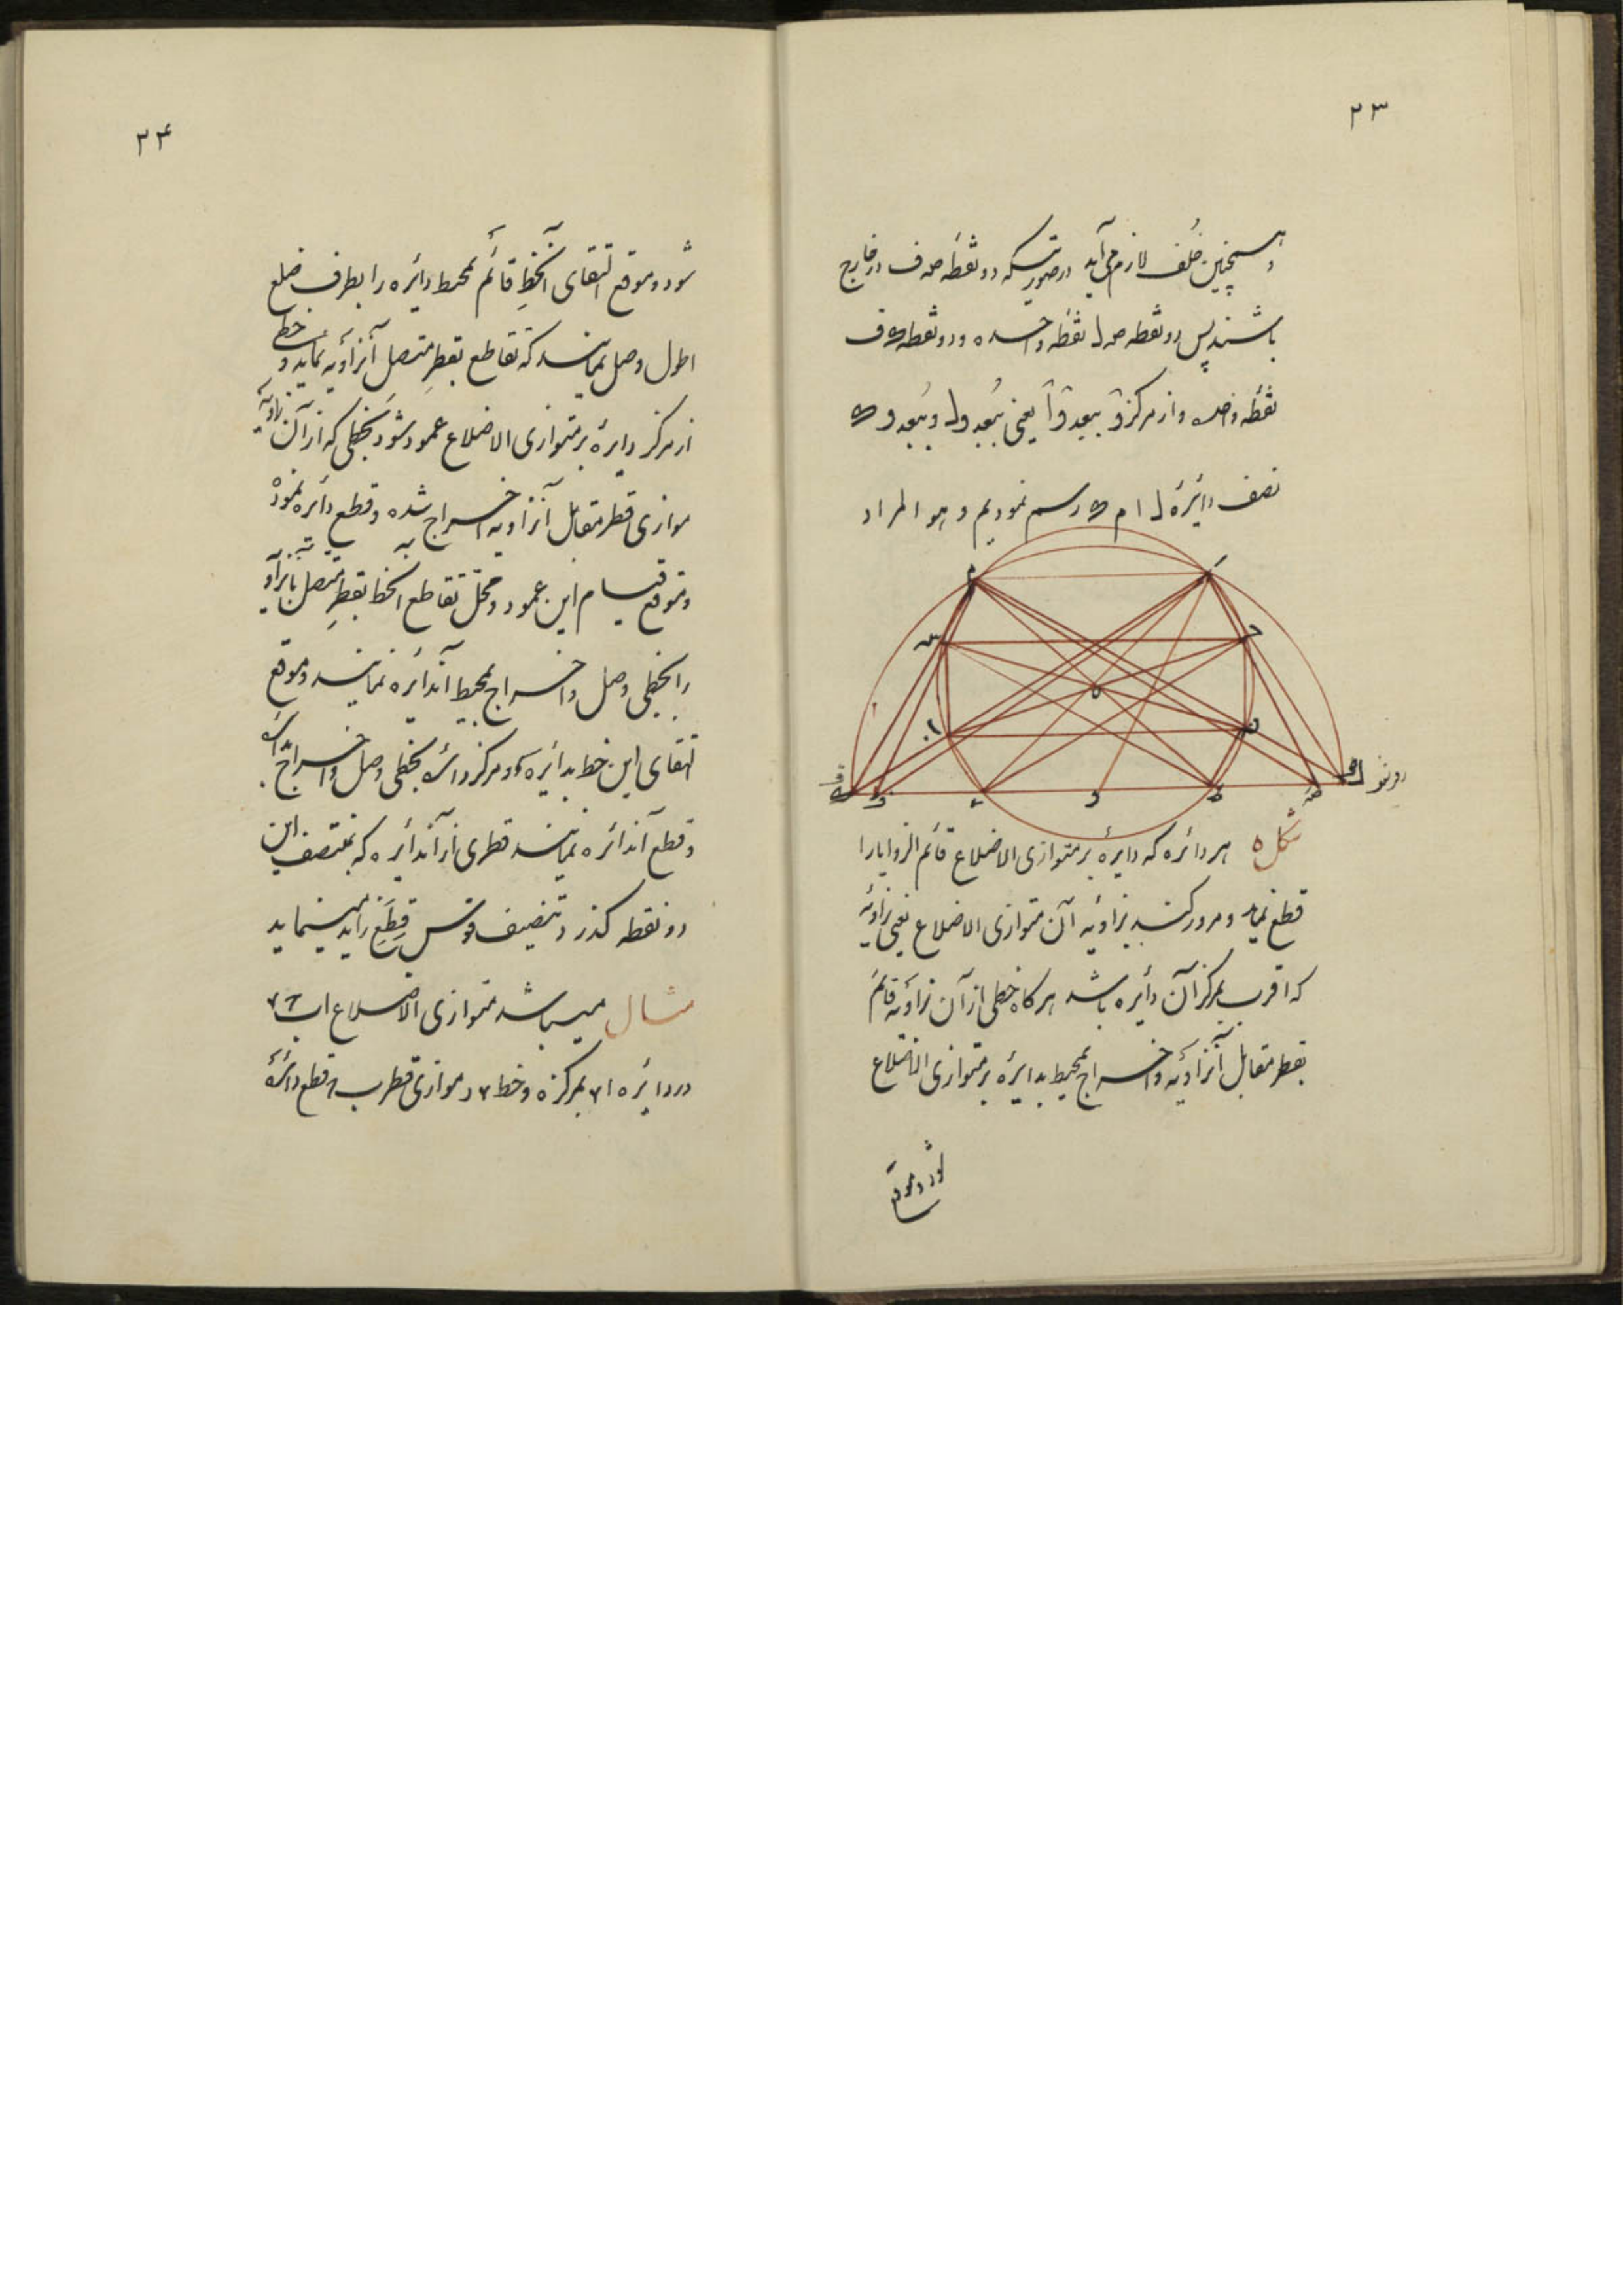 ۲۳
و همچنین خُلف لازم می‌آید در صورتیکه دو نقطهٔ صه ف در خارج
باشند پس دو نقطه صه ل نقطه واحده و دو نقطه ک ف
نقطه واحده و از مرکز و ببعد و آ یعنی ببُعد و ل و ببُعد و ک
نصف دائرهٔ ل ا م ک رسم نمودیم و هو المراد
شکل ۵ هر دائره که دایرهٔ بر متوازی الاضلاع قائم الزوایا را
قطع نماید و مرور کند بزاویه آن متوازی الاضلاع یعنی بزاویهٔ
که اقرب بمرکز آن دائره باشد هرگاه خطی از آن زاویه قائم
بقطر مقابل آنزاویه و اخراج بمحیط بدایرهٔ بر متوازی الاضلاع
شود و موقع
۲۴
شود و موقع التقای آنخطِ قائم بمحیط دائره را بطرف ضلع
اطول وصل نمایند که تقاطع بقطرِ متصل آنزاویه نماید و خطی
از مرکز دایرهٔ بر متوازی الاضلاع عمود شود بخطی که از آن زاویه
موازی قطر مقابل آنزاویه اخراج شده و قطع دائره نموده
و موقع قیام این عمود و محل تقاطع آنخط بقطرِ متصل بآنزاویه
را بخطی وصل و اخراج بمحیط آندائره نمایند و موقع
التقای این خط بدائره و مرکز دائره بخطی وصل و اخراج
و قطع آندائره نمایند قطری از آندائره که بمنتصف این
دو نقطه گذرد تنصیف قوس قِطَعِ زاید مینماید
مثال میباشد متوازی الاضلاع اب
در دایره ا بمرکز ه و خط د موازی قطر ب قطع دائرهٔ